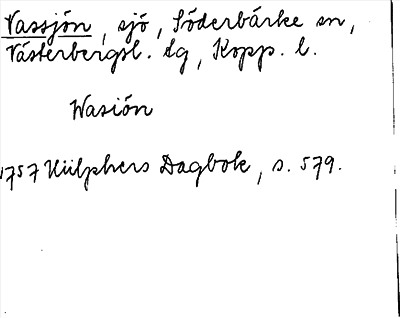 Vassjön, sjö, Söderbärke sn,
Västerbergsl. tg, Kopp. l.
Wasiön
1757 Hülphers Dagbok, s. 579.